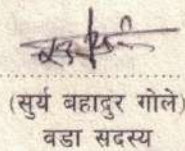 (सुर्य बहादुर गोले)
वडा सदस्य